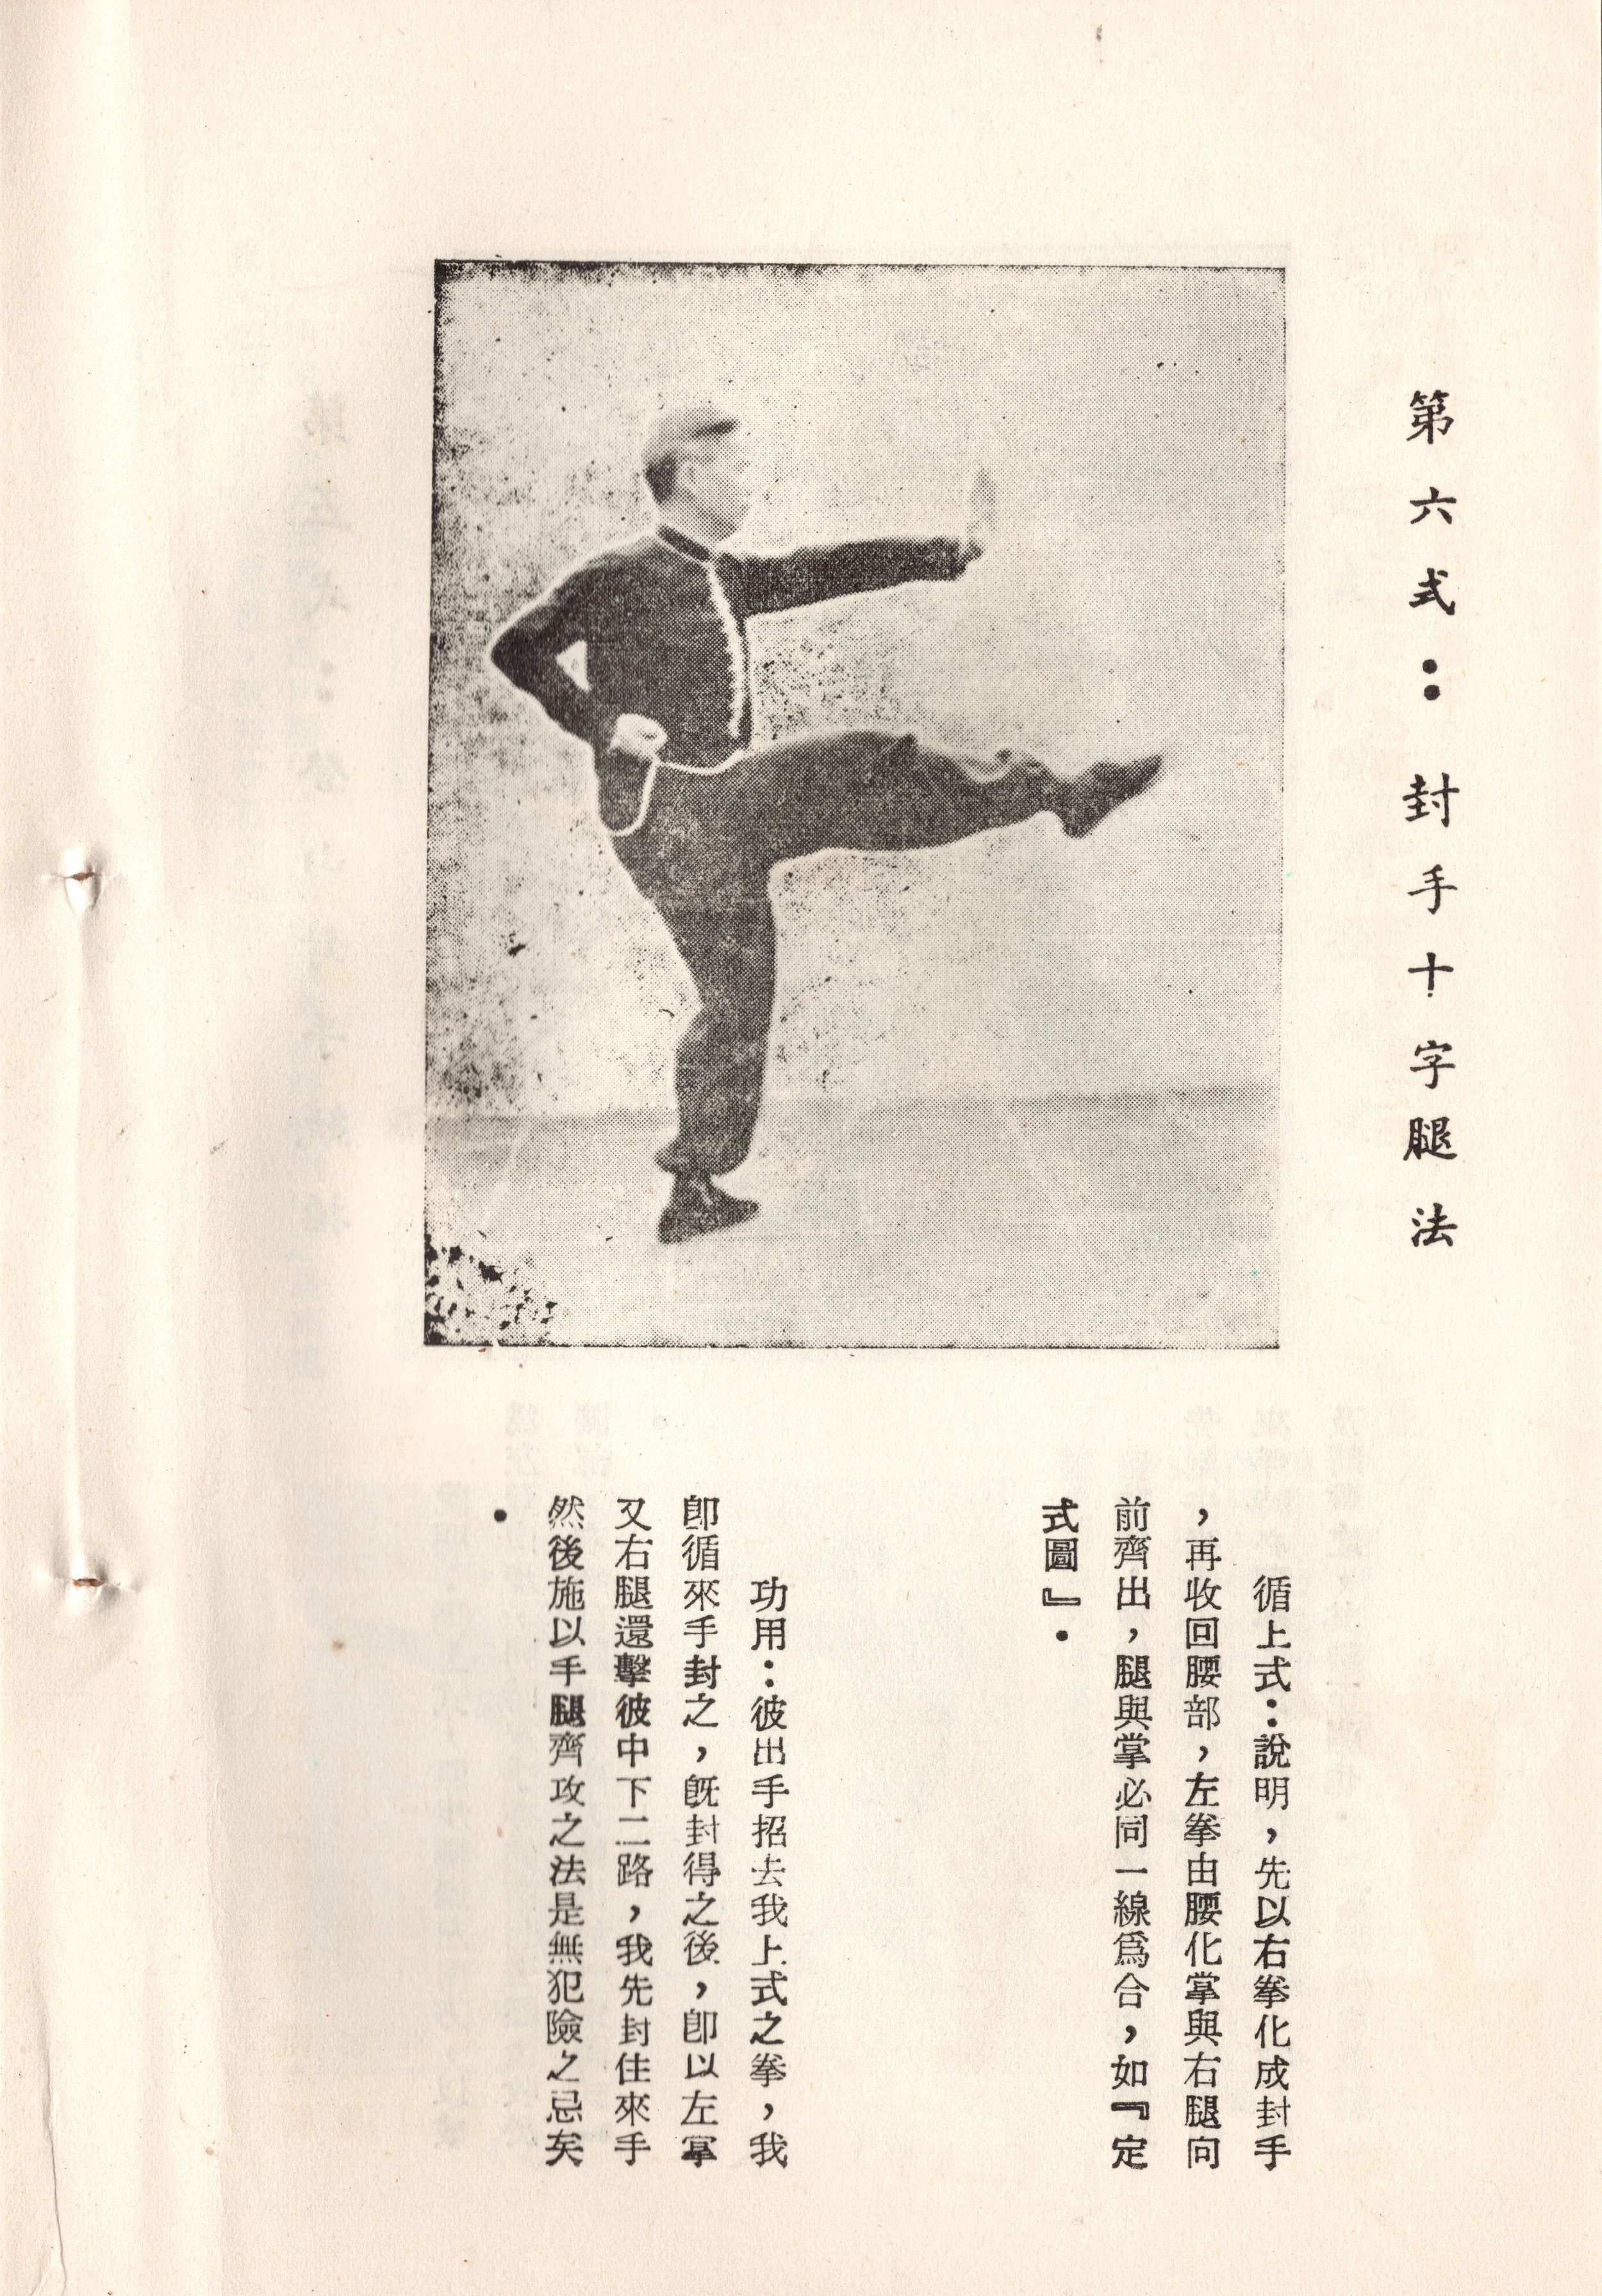 第六式：封手十字腿法
循上式：說明，先以右拳化成封手
，再收回腰部，左拳由腰化掌與右腿向
前齊出，腿與掌必同一線爲合，如『定
式圖』．
功用：彼出手招去我上式之拳，我
卽循來手封之，旣封得之後，卽以左掌
又右腿還擊彼中下二路，我先封住來手
然後施以手腿齊攻之法是無犯險之忌矣
．